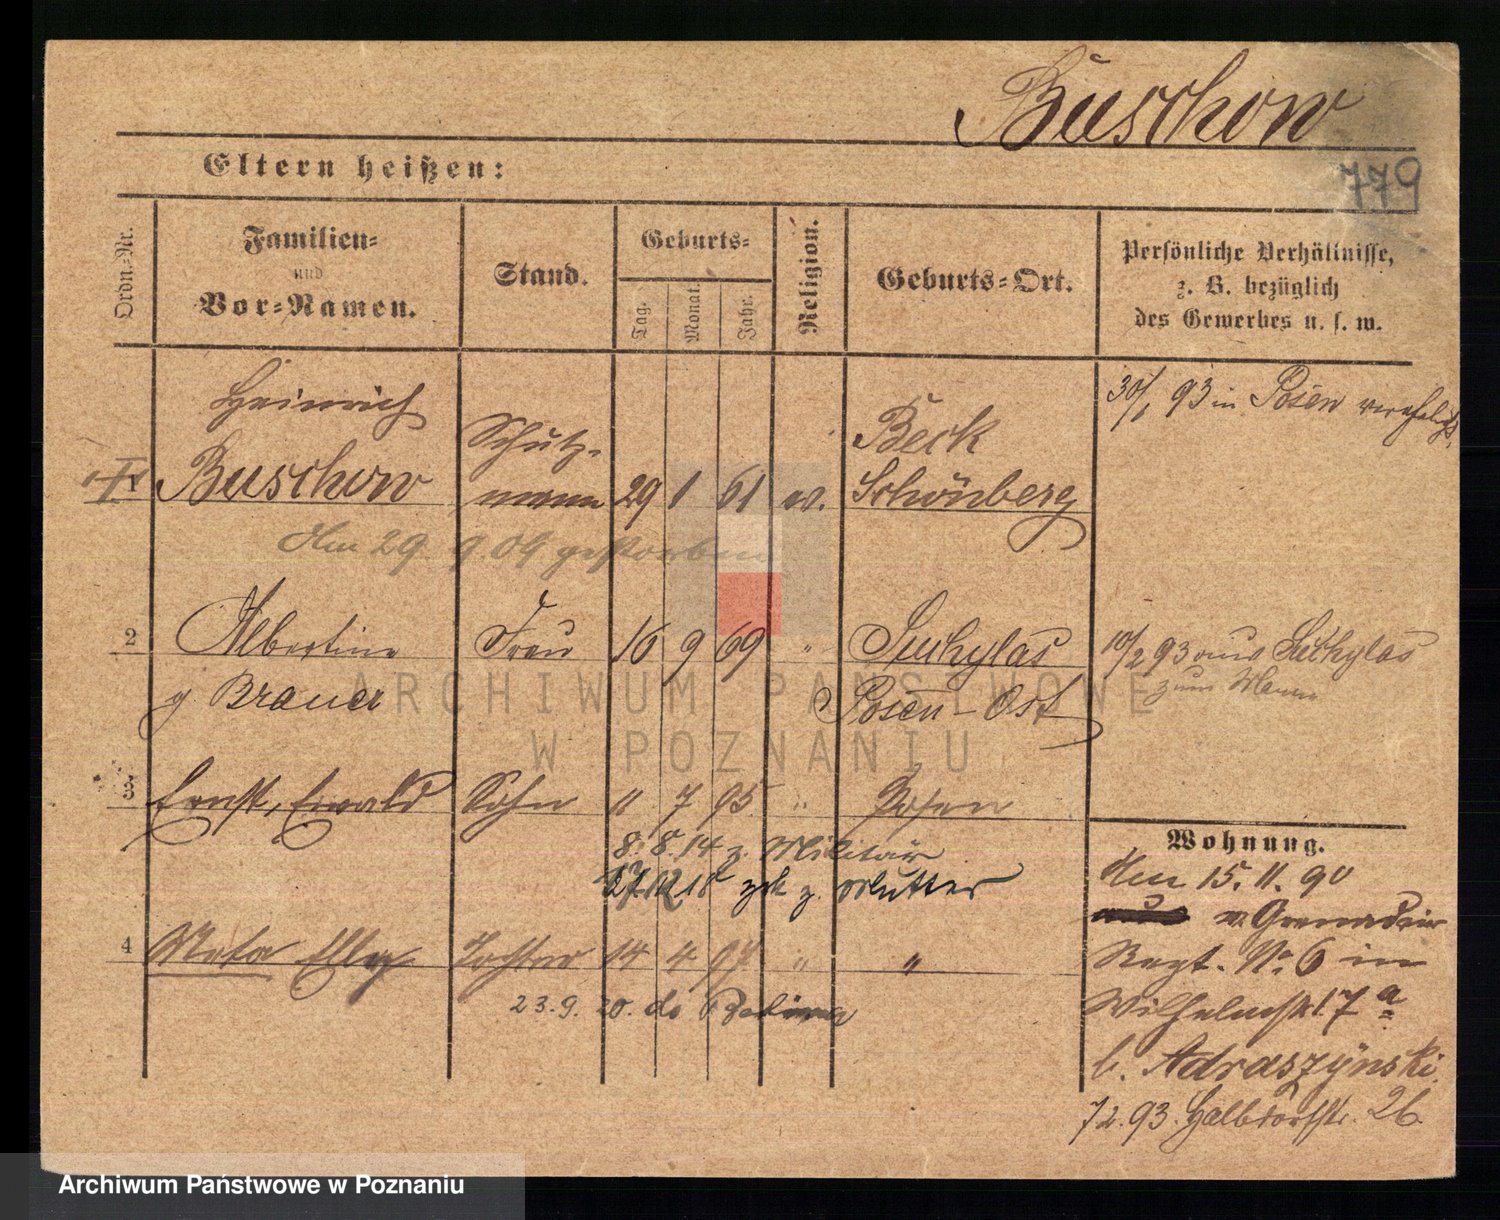 Buschow
779
Eltern heißen:
Ordn.-Nr.
Familien-
und
Vor-Namen.
Stand.
Geburts-
Tag.
Monat.
Jahr.
Religion.
Geburts-Ort.
Persönliche Verhältnisse,
z. B. bezüglich
des Gewerbes u. s. w.
Heinrich
Buschow
Schutz-
mann
29 1 61 ev.
Beck
Schönberg
30/1 93 in Posen verehelicht
Am 29. 9. 09 gestorben
2 Albertine Frau 16 9 69 " Suchylas
g Brauer Posen-Ost
10/2 93 aus Suchylas
zum Mann
3 Ernst, Ewald Sohn 11 7 95 " Posen
8. 8. 14 z. Militär
27.12.18 zck z. Mutter
4 Meta Elly Tochter 14 4 97 " "
23.9.20. do
Wohnung.
Am 15. 11. 90
v. Grenadier
Regt. No. 6 in
Wilhelmstr 17 a
b. Adraszynski
7 2. 93. Halbdorfstr. 26.
ARCHIWUM PAŃSTWOWE
W POZNANIU
Archiwum Państwowe w Poznaniu